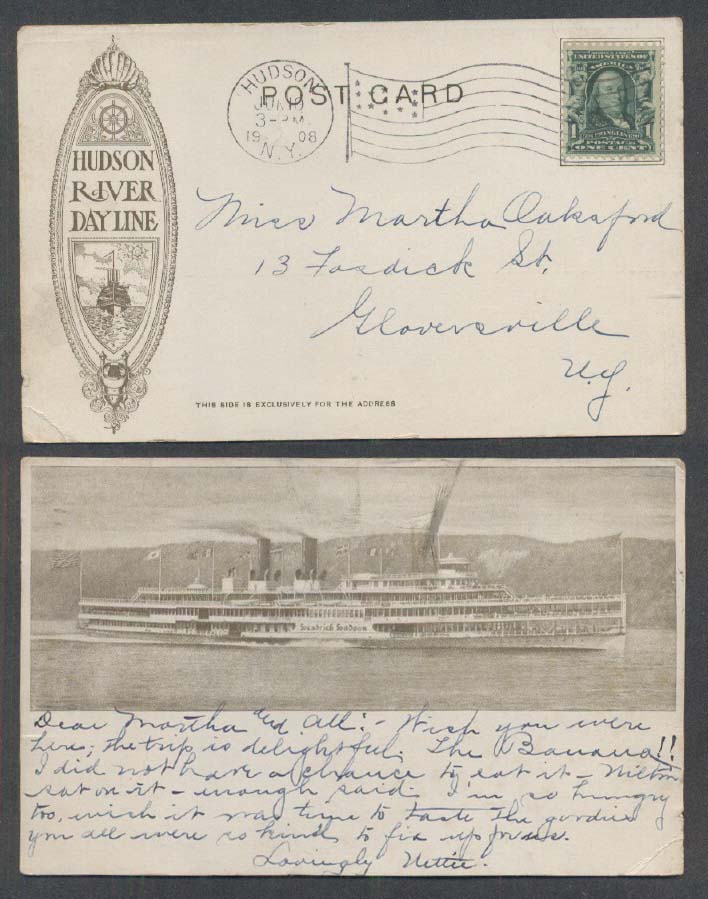 HUDSON
RIVER
DAY LINE
POST CARD
HUDSON
JUN
3-PM
19 08
N.Y.
UNITED STATES OF
AMERICA
1 1
FRANKLIN
POSTAGE
ONE CENT
Miss Martha Oaksford
13 Fosdick St.
Gloversville
N.Y.
THIS SIDE IS EXCLUSIVELY FOR THE ADDRESS
Hendrick Hudson
Dear Martha and All:- Wish you were
here; the trip is delightful. The Banana!!
I did not have a chance to eat it - Milton
sat on it - enough said. I'm so hungry
too, wish it was time to taste the goodies
you all were so kind to fix up for us.
Lovingly Nettie.